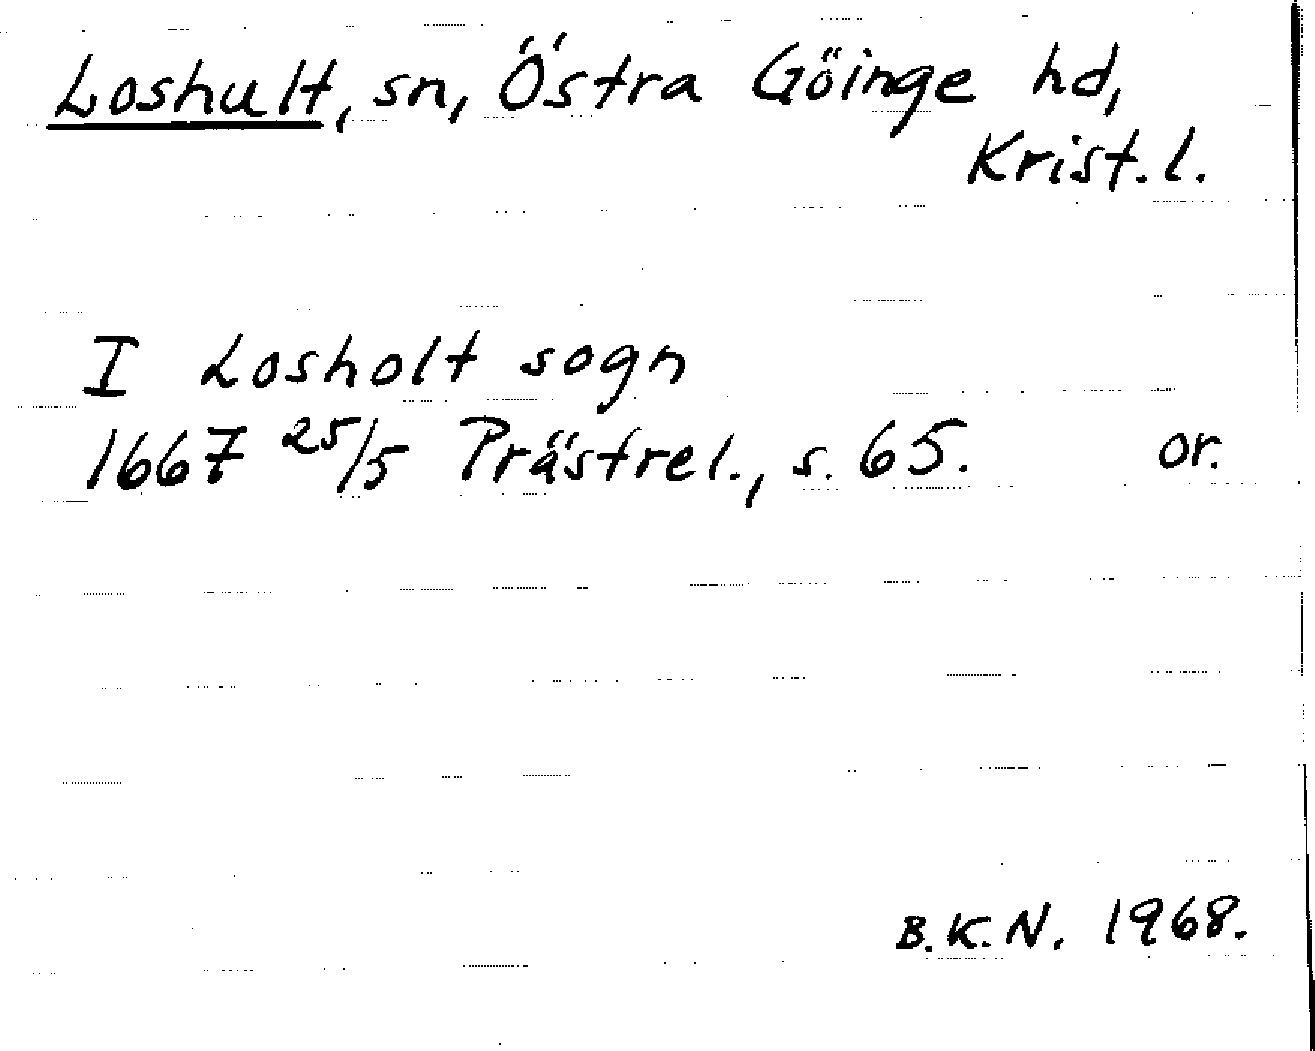 Loshult, sn, Östra Göinge hd,
Krist. l.
I Losholt sogn
1667 25/5 Prästrel., s. 65. or.
B.K.N. 1968.